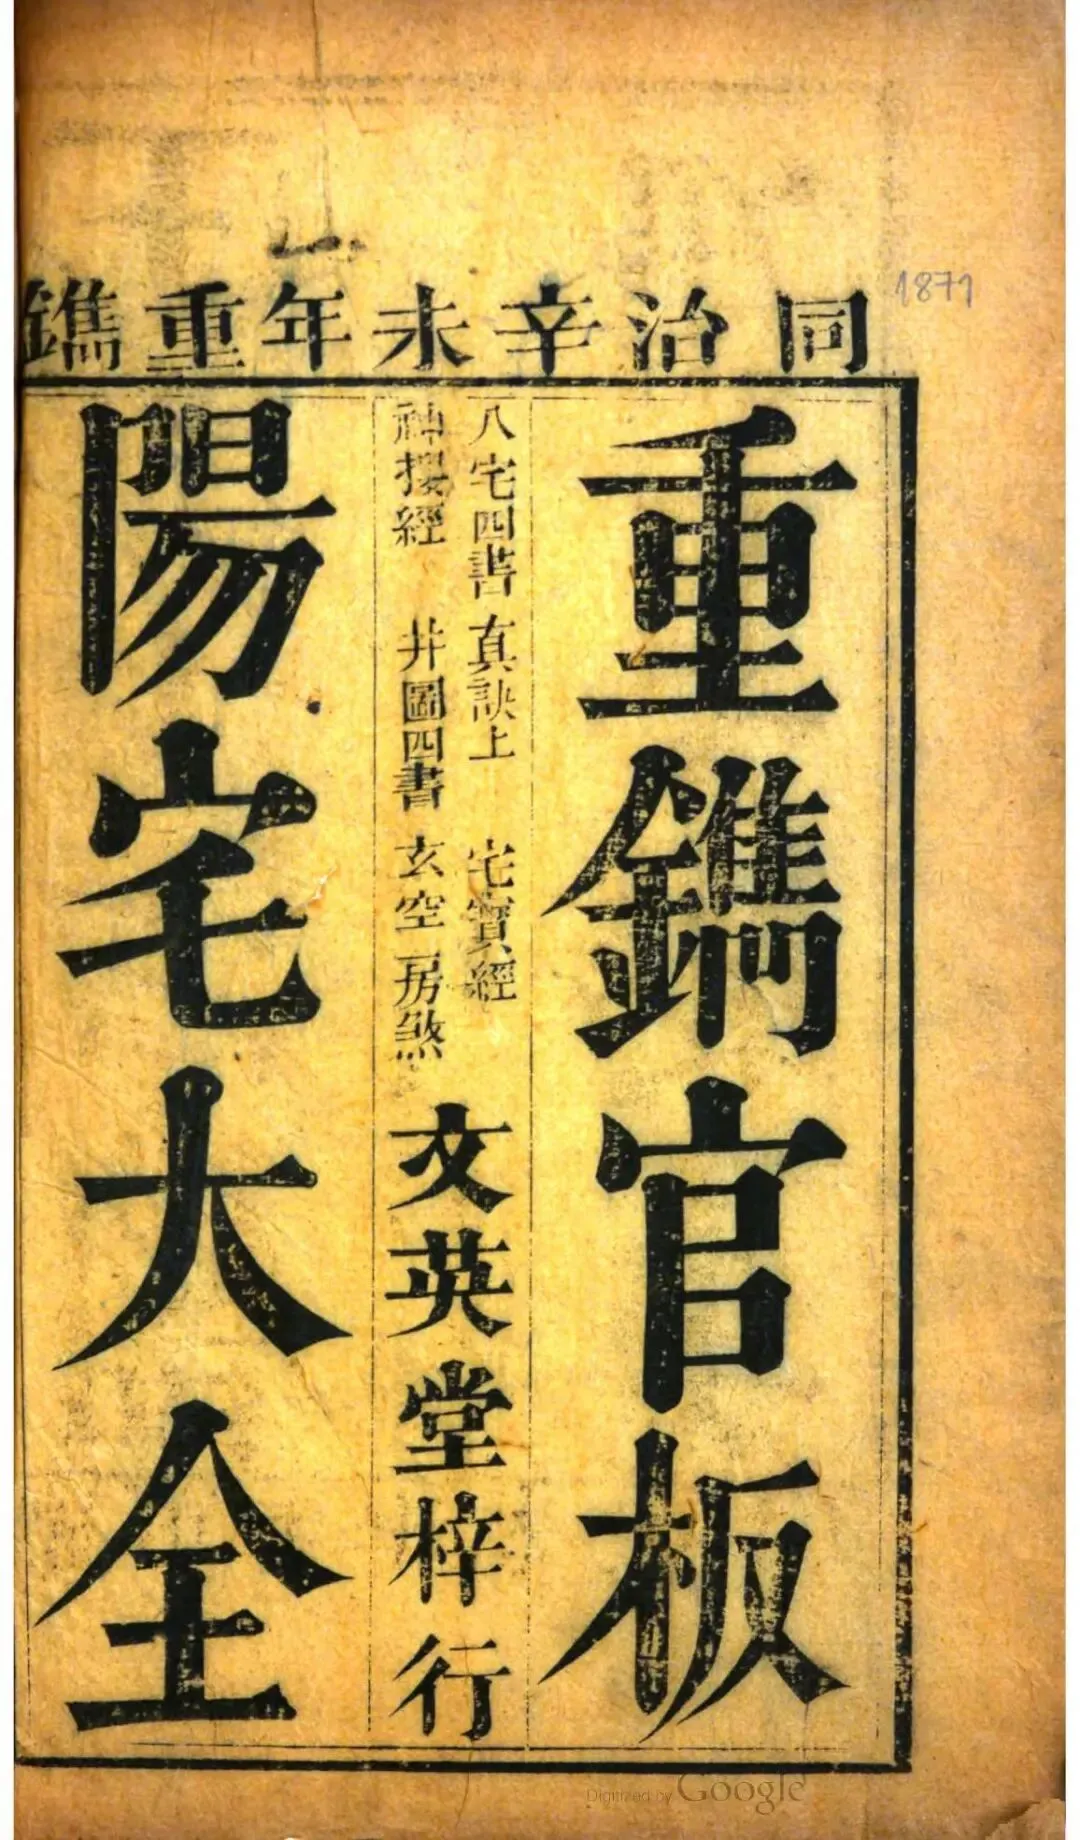 同治辛未年重鐫
1871
重鐫官板
八宅四書 真訣上 宅寶經
神搜經 井圖四書 玄空房煞
文英堂梓行
陽宅大全
Digitized by Google